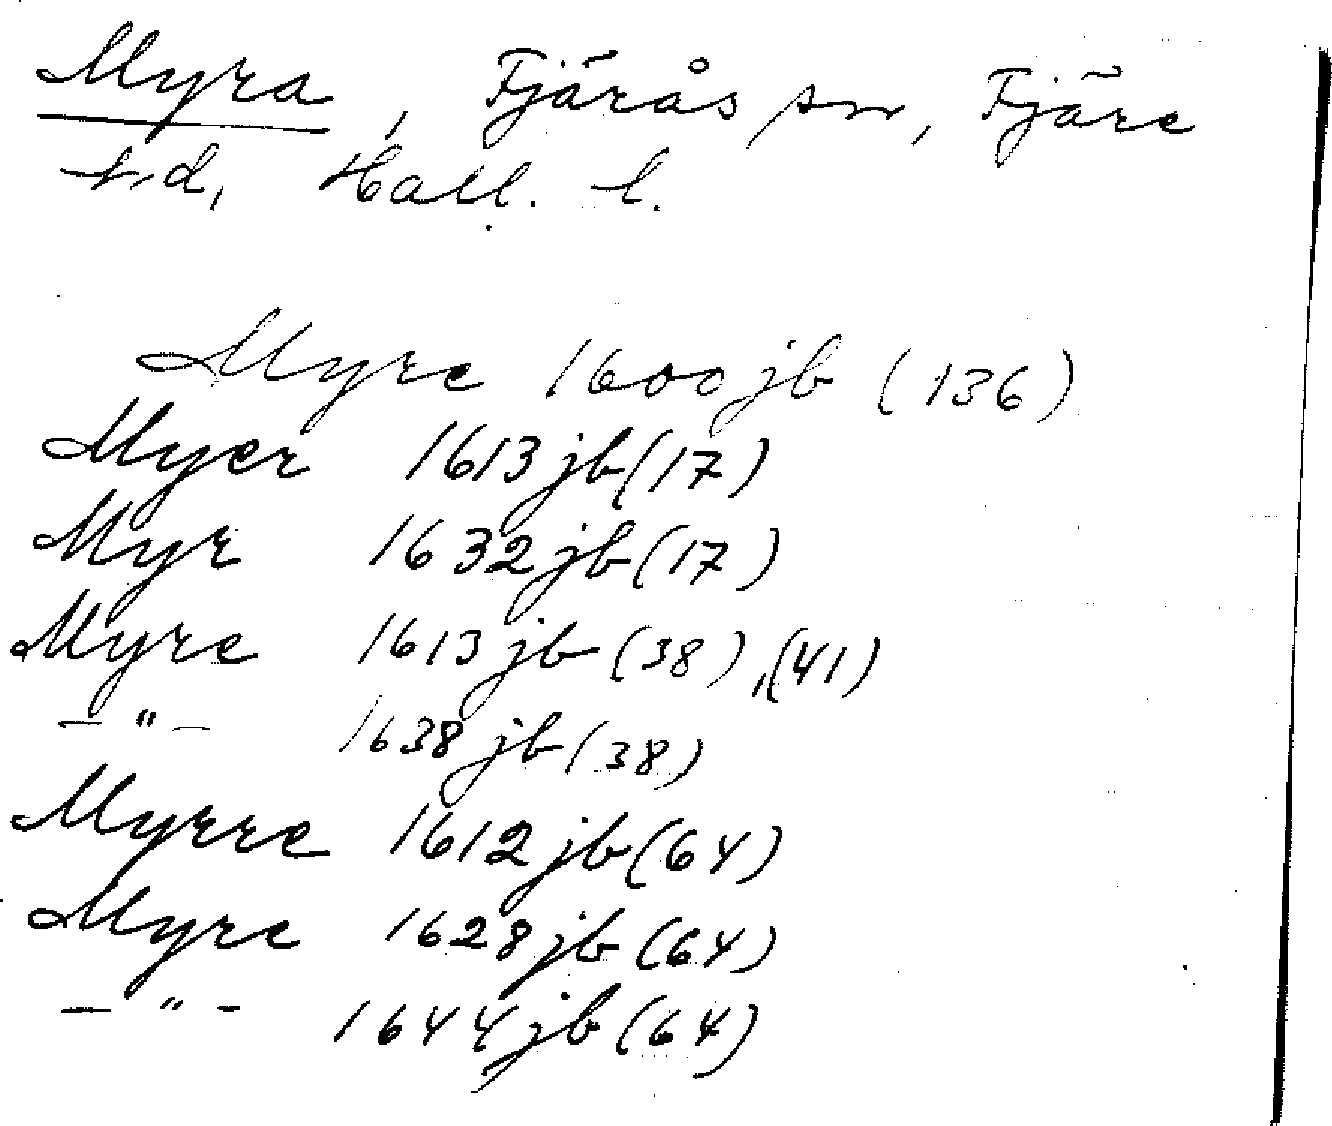 Myra, Fjärås sn, Fjäre
h.d, Hall. l.
Myre 1600 jb (136)
Myer 1613 jb (17)
Myr 1632 jb (17)
Myre 1613 jb (38), (41)
— " — 1638 jb (38)
Myrre 1612 jb (64)
Myre 1628 jb (64)
— " — 1644 jb (64)